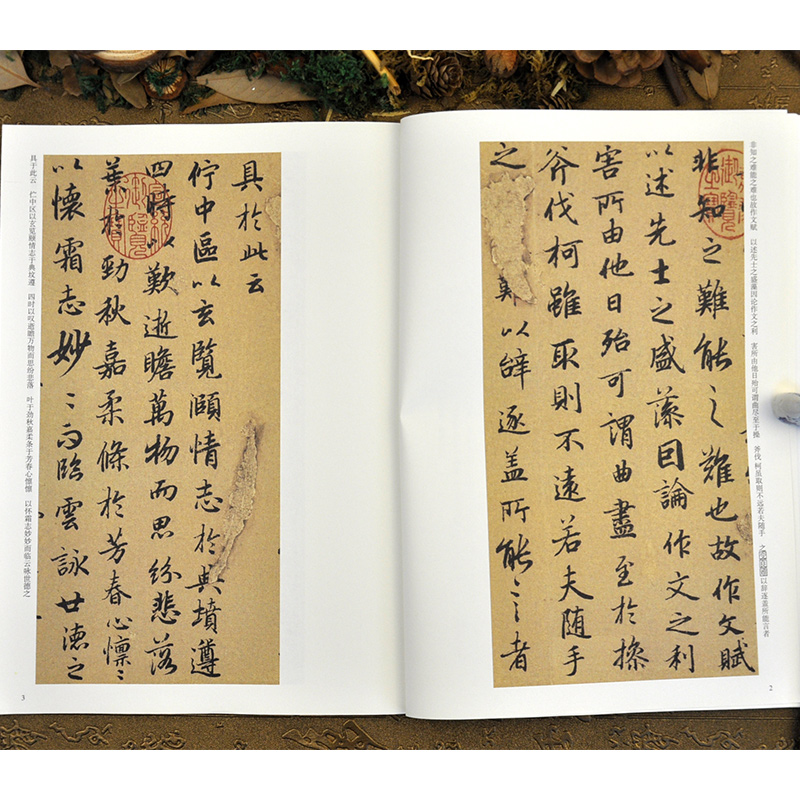 非知之难能之难也故作文赋 以述先士之盛藻因论作文之利 害所由他日殆可谓曲尽至于操 斧伐柯虽取则不远若夫随手 之 以辞逐盖所能言者
非知之難能之難也故作文賦
以述先士之盛藻因論作文之利
害所由他日殆可謂曲盡至於操
斧伐柯雖取則不遠若夫随手
之 難以辝逐盖所能言者
2
具於此云
佇中區以玄覽頤情志於典墳遵
四時以歎逝瞻萬物而思紛悲落
葉於勁秋嘉柔條於芳春心懍〻
以懷霜志妙〻而臨雲詠世德之
具于此云 伫中区以玄览颐情志于典坟遵 四时以叹逝瞻万物而思纷悲落 叶于劲秋嘉柔条于芳春心懔懔 以怀霜志妙妙而临云咏世德之
3